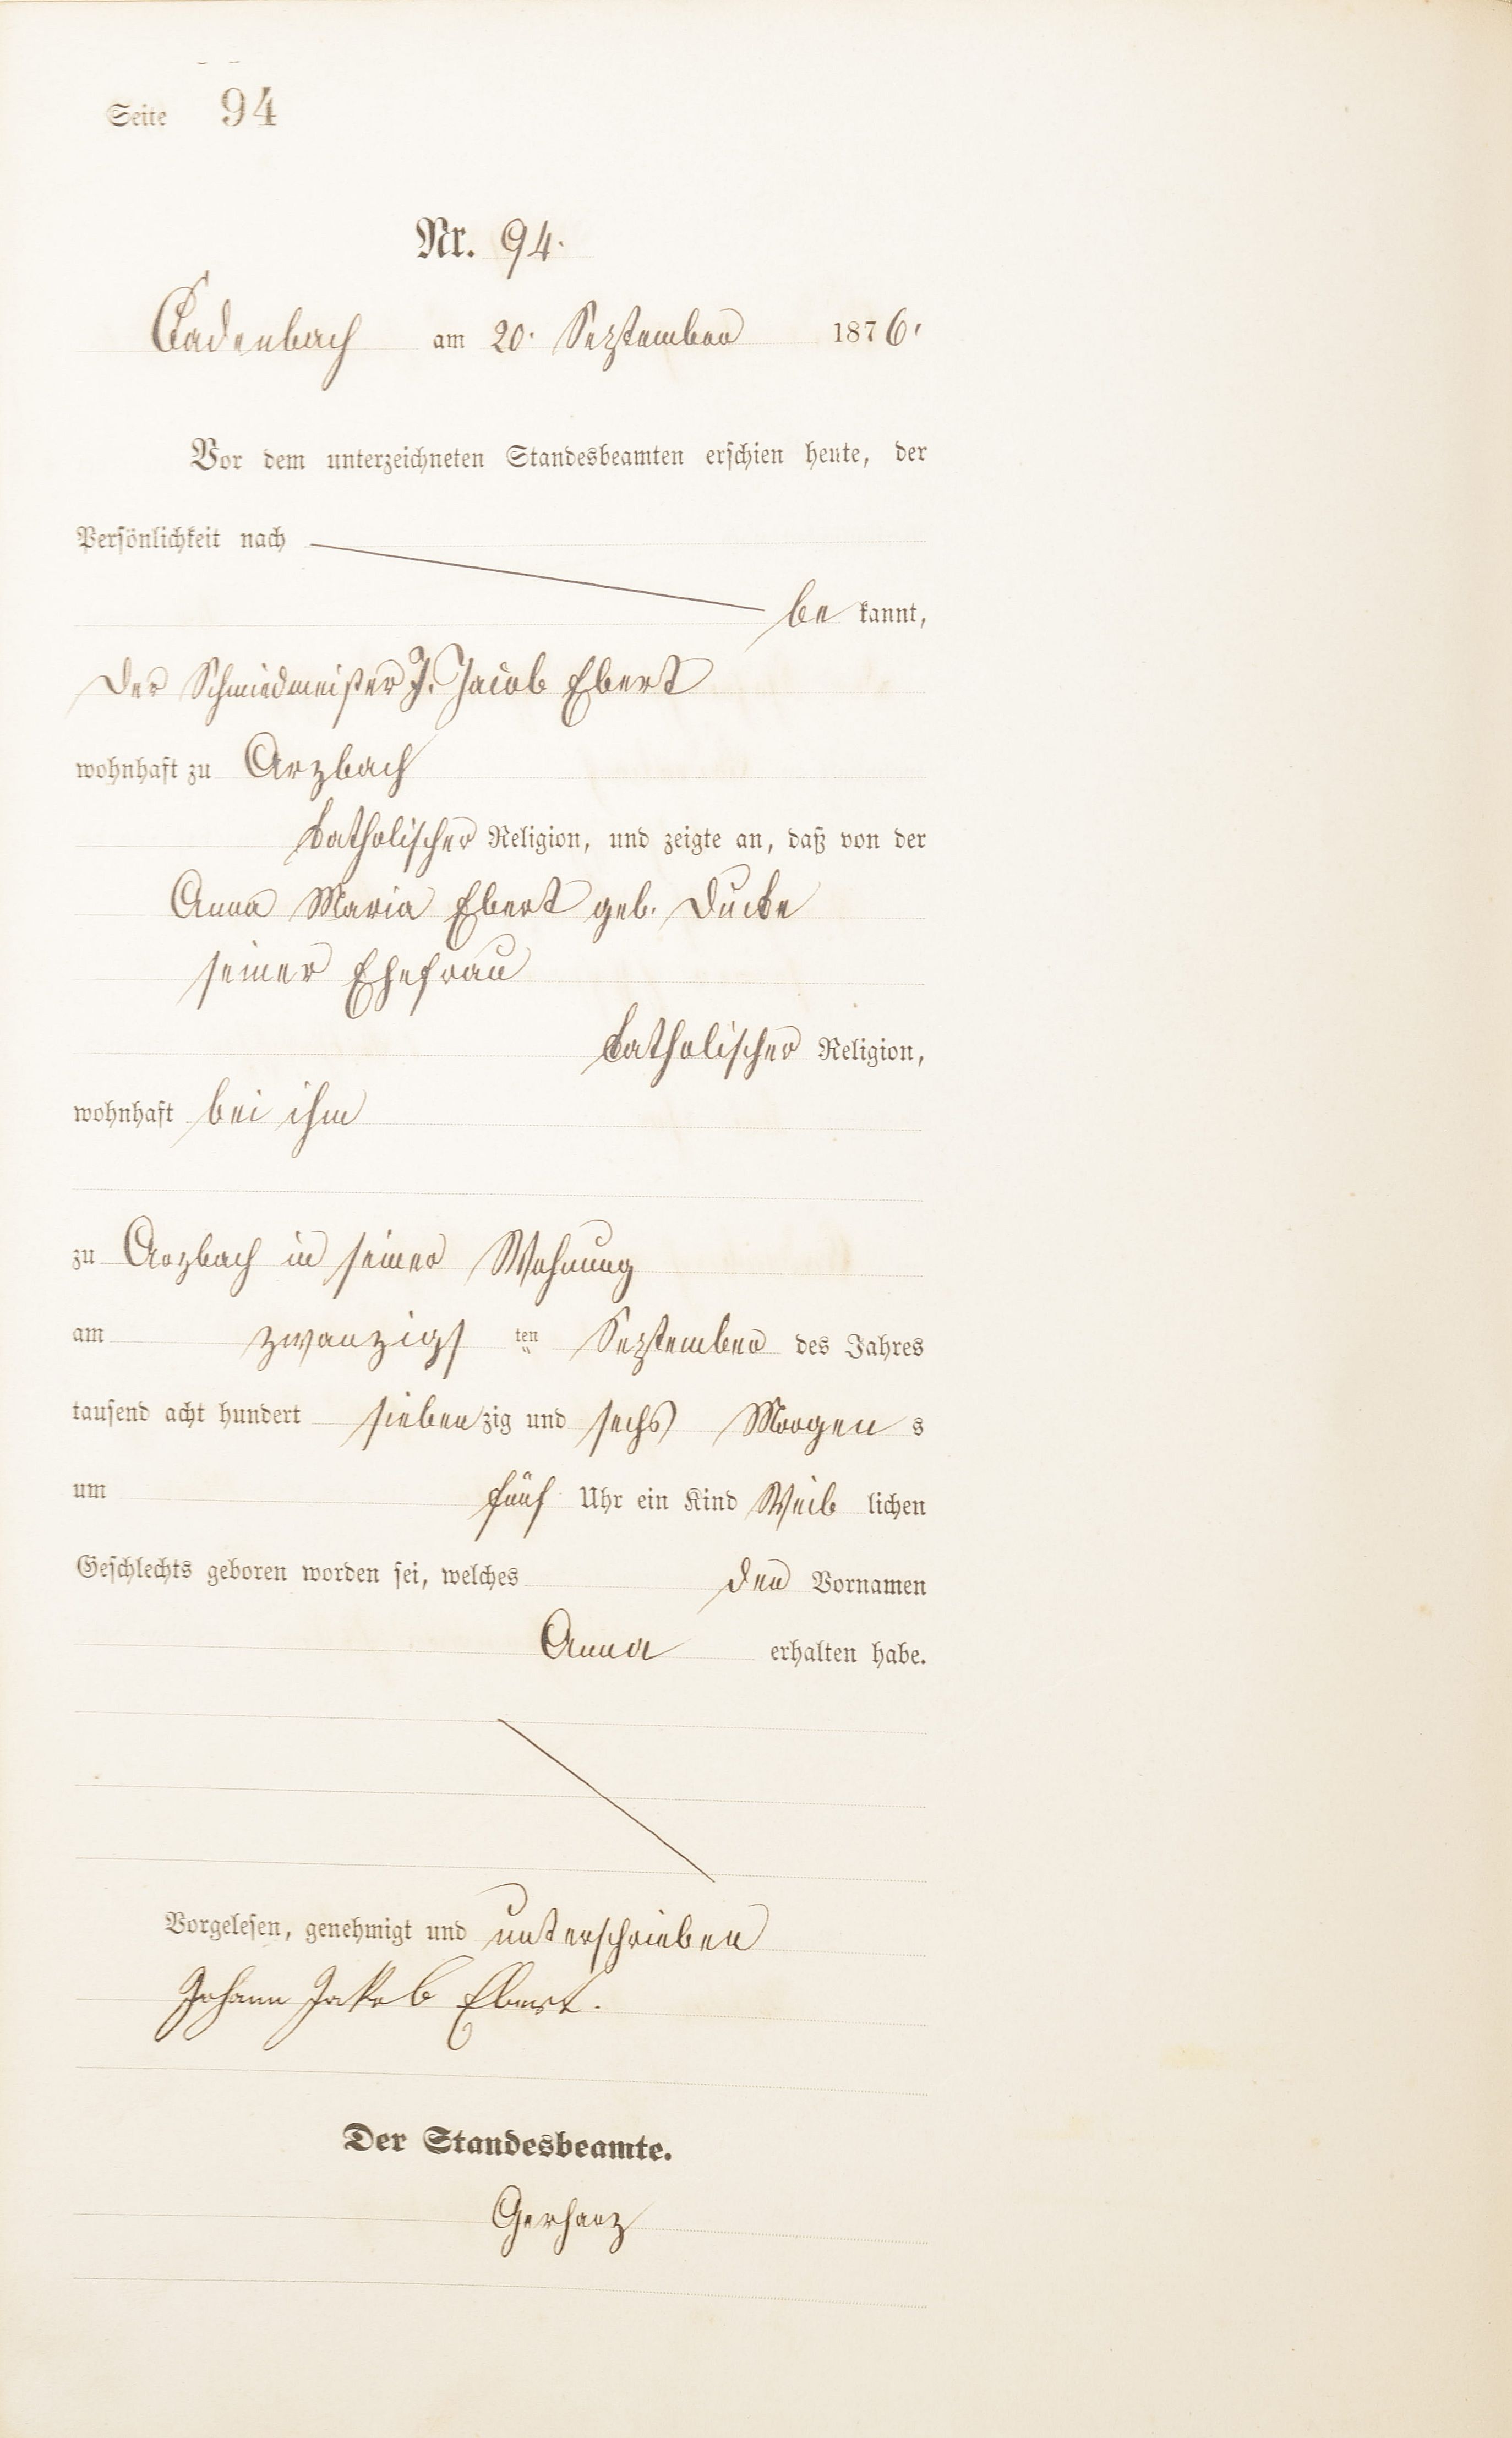 Seite 94
Nr. 94.
Cadenbach am 20. September 1876.
Vor dem unterzeichneten Standesbeamten erschien heute, der
Persönlichkeit nach
be kannt,
der Schmiedmeister J. Jacob Ebert
wohnhaft zu Arzbach
katholischer Religion, und zeigte an, daß von der
Anna Maria Ebert geb. Ducke
seiner Ehefrau
katholischer Religion,
wohnhaft bei ihm
zu Arzbach in seiner Wohnung
am zwanzigs ten September des Jahres
tausend acht hundert sieben zig und sechs Morgen s
um fünf Uhr ein Kind Weib lichen
Geschlechts geboren worden sei, welches den Vornamen
Anna erhalten habe.
Vorgelesen, genehmigt und unterschrieben
Johann Jakob Ebert.
Der Standesbeamte.
Gerharz